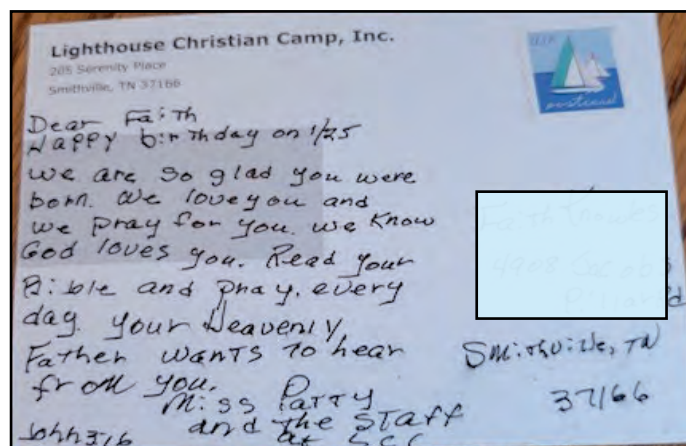 Lighthouse Christian Camp, Inc.
205 Serenity Place
Smithville, TN 37166
postcard
Dear Faith
Happy birthday on 1/25
we are so glad you were
born. We love you and
we pray for you. we know
God loves you. Read your
Bible and pray, every
day. your Heavenly
Father wants to hear
from you.
Miss Patty
and the staff
at LCC
John 3:16
Smithville, TN
37166